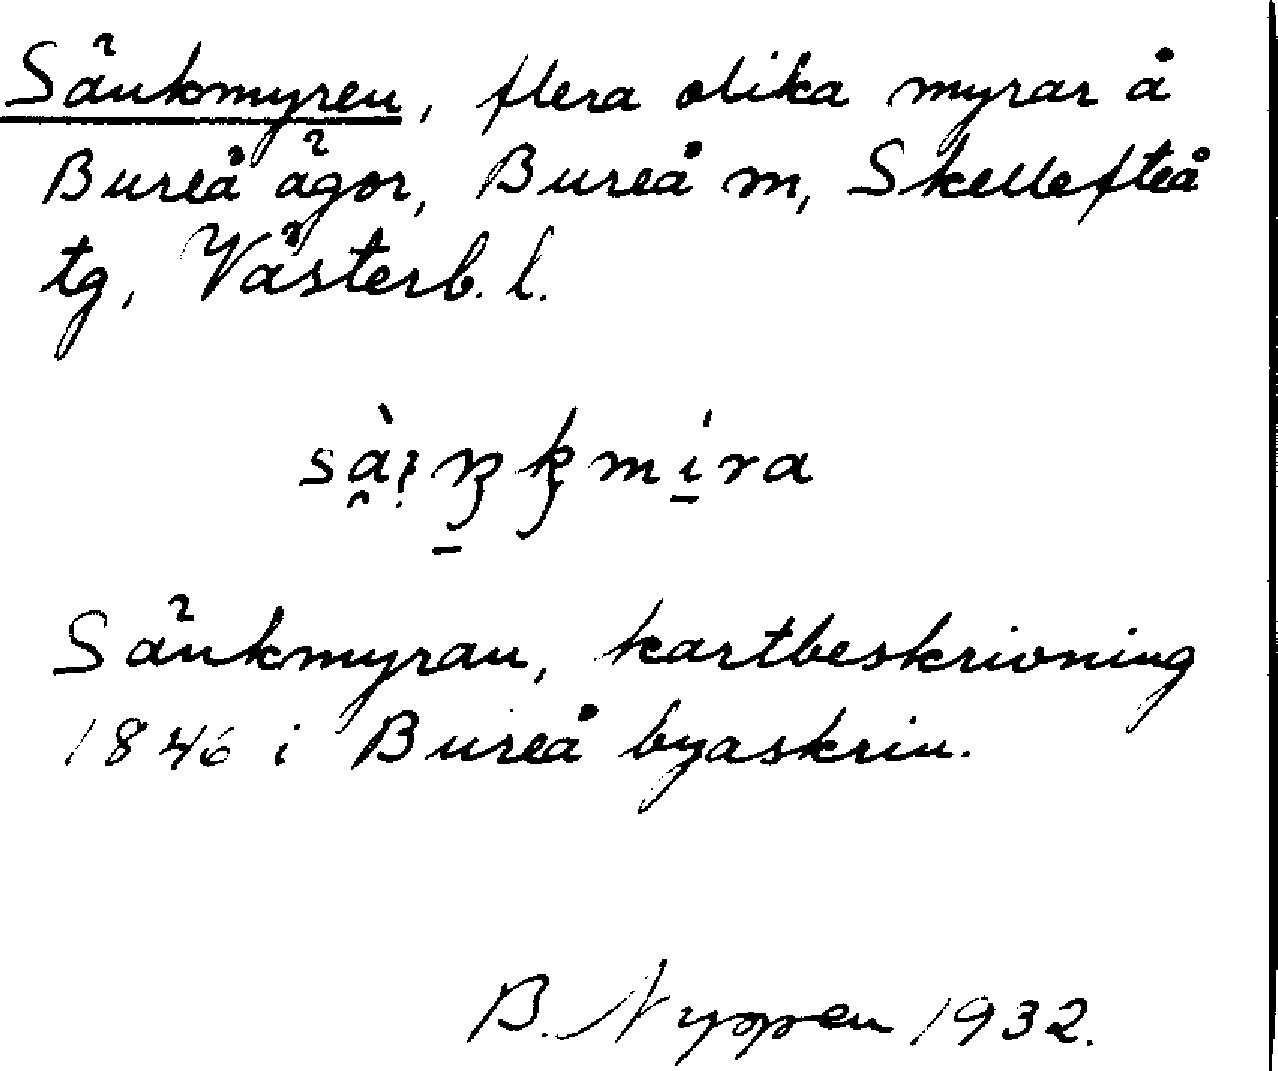 Sänkmyren, flera olika myrar å
Bureå ägor, Bureå m, Skellefteå
tg, Västerb. l.
Sänkmyran, kartbeskrivning
1846 i Bureå byaskrin.
B. 1932.